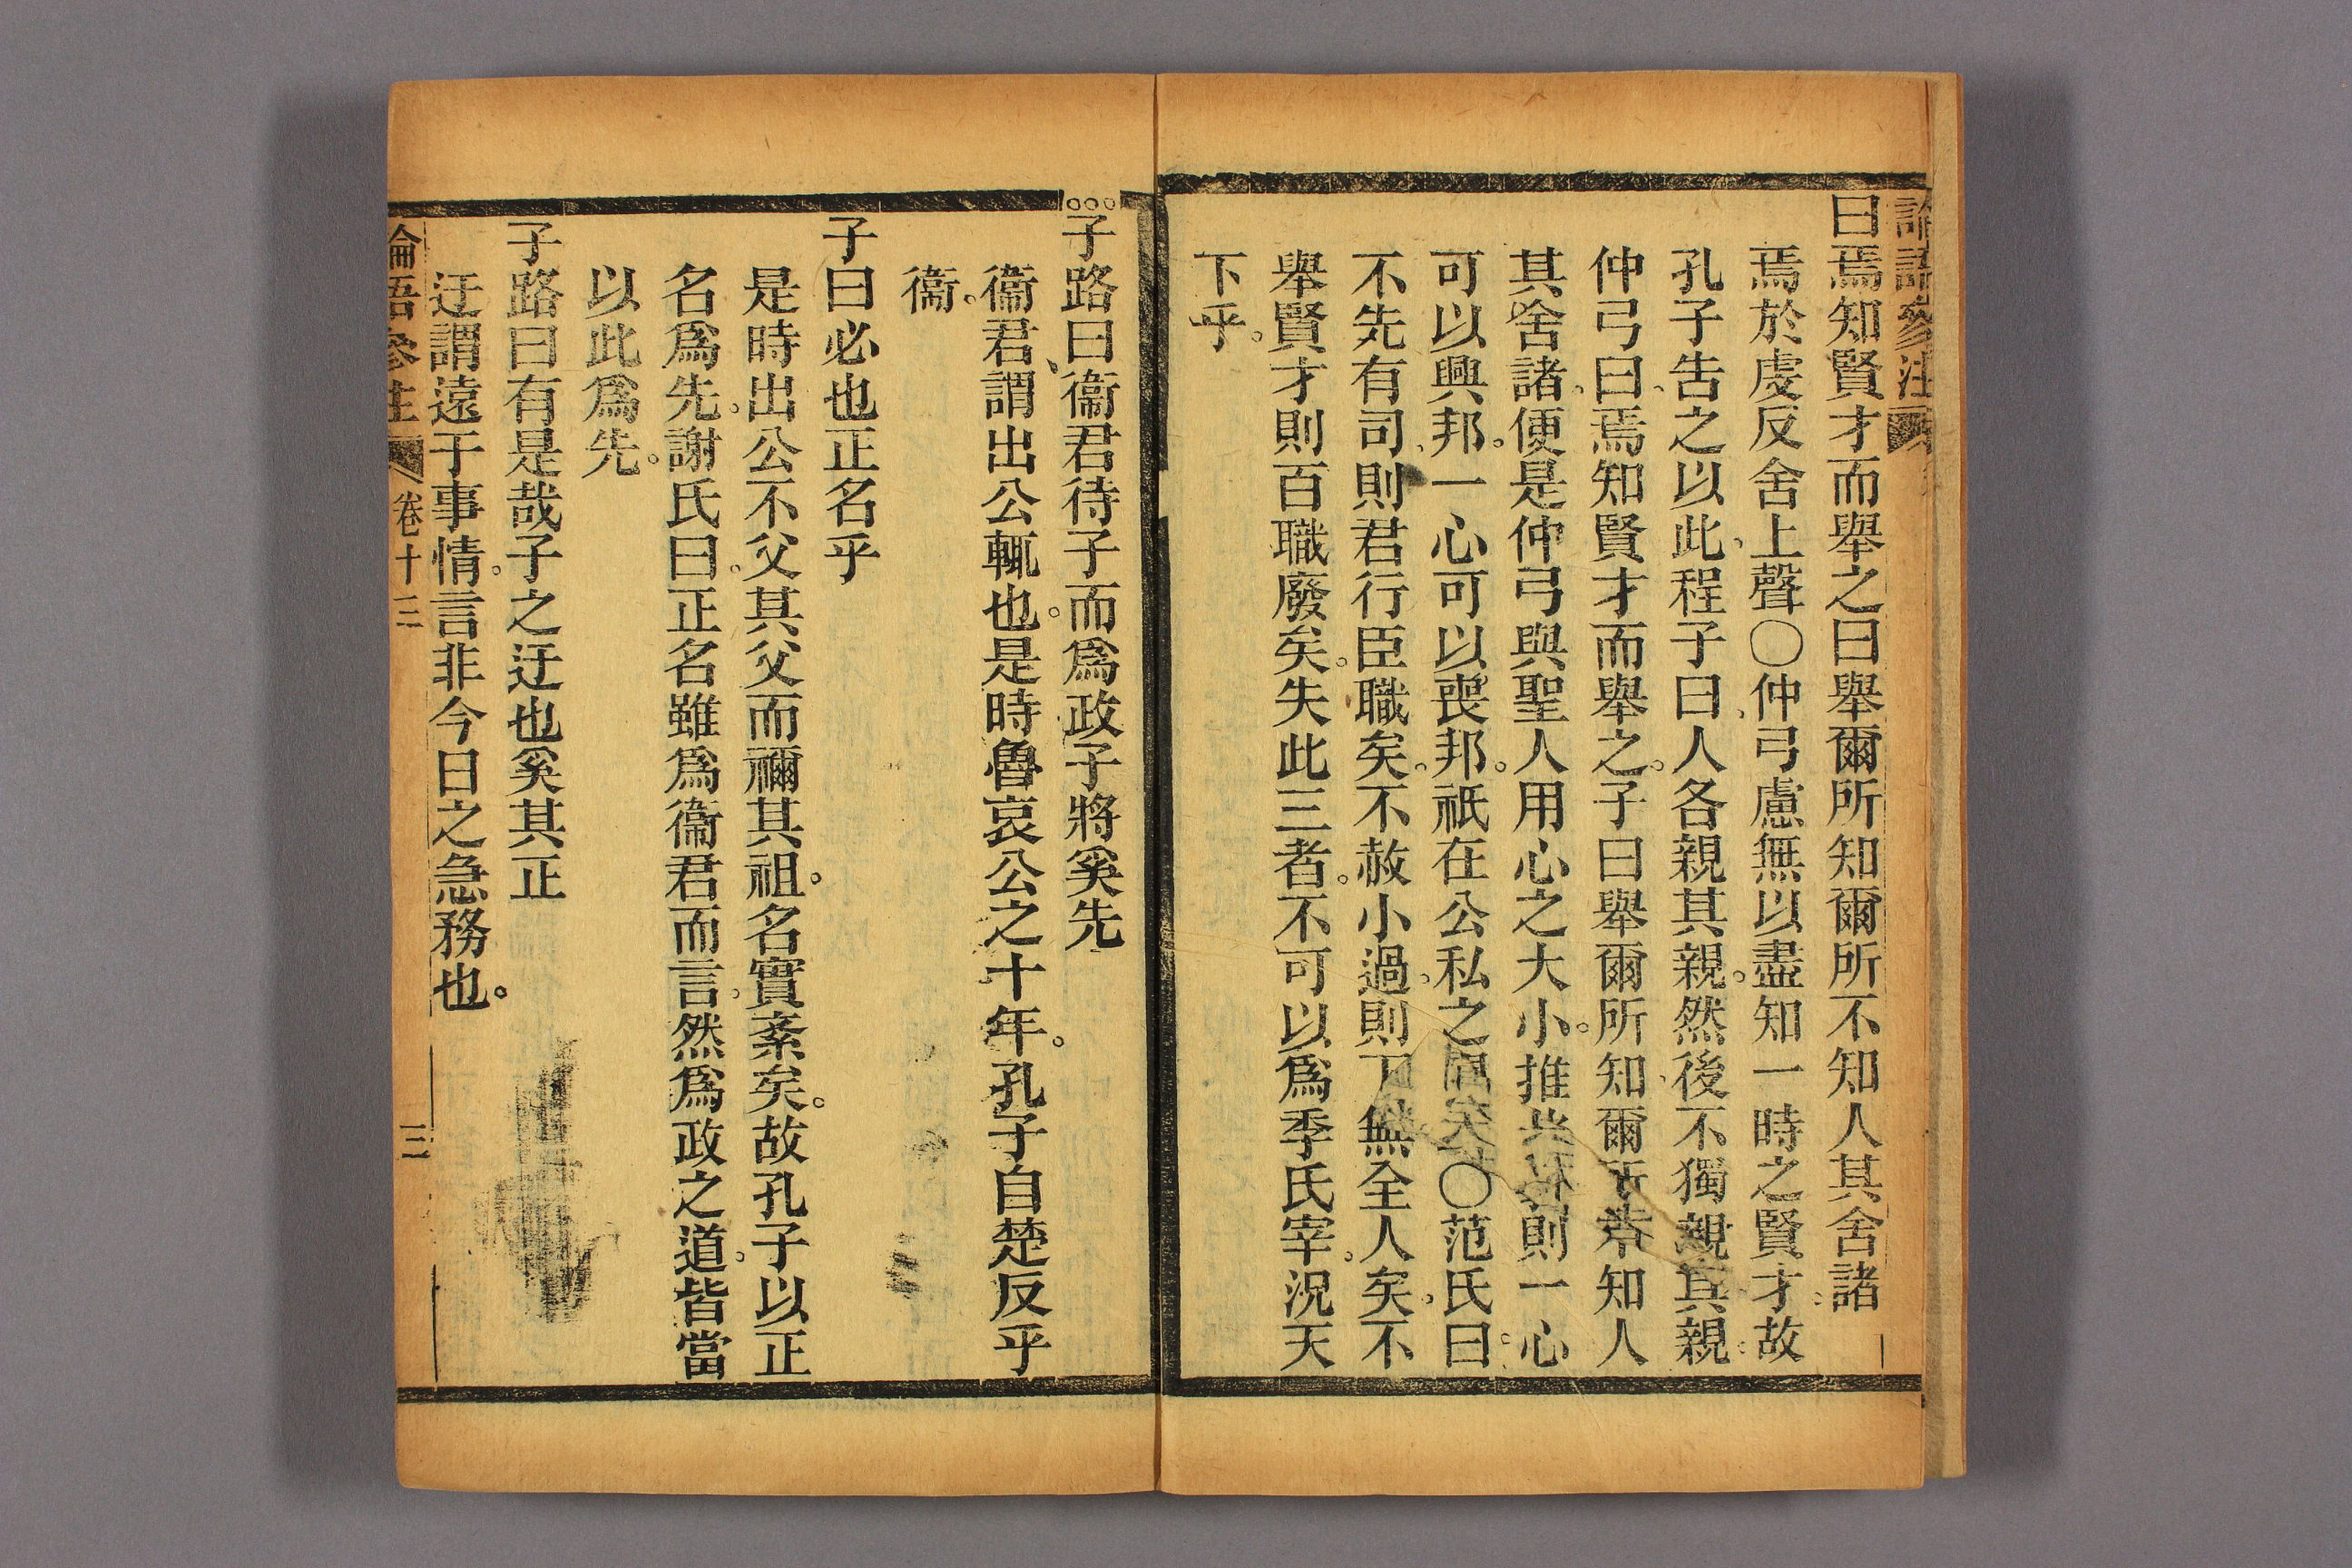 論語參注
曰焉知賢才而舉之曰舉爾所知爾所不知人其舍諸
焉於虔反舍上聲〇仲弓慮無以盡知一時之賢才。故
孔子告之以此、程子曰、人各親其親。然後不獨親其親。
仲弓曰、焉知賢才而舉之。子曰舉爾所知、爾所不知人
其舍諸、便是仲弓與聖人用心之大小。推此義則一心
可以興邦。一心可以喪邦。祇在公私之間矣〇范氏曰。
不先有司、則君行臣職矣。不赦小過。則下無全人矣。不
舉賢才則百職廢矣。失此三者。不可以爲季氏宰。況天
下乎。
子路曰衞君待子而爲政子將奚先
衞君、謂出公輒也。是時魯哀公之十年。孔子自楚反乎
衞。
子曰必也正名乎
是時出公不父其父而禰其祖。名實紊矣。故孔子以正
名爲先。謝氏曰。正名雖爲衞君而言。然爲政之道。皆當
以此爲先。
子路曰有是哉子之迂也奚其正
迂謂遠于事情。言非今日之急務也。
論語參注 卷十三 三